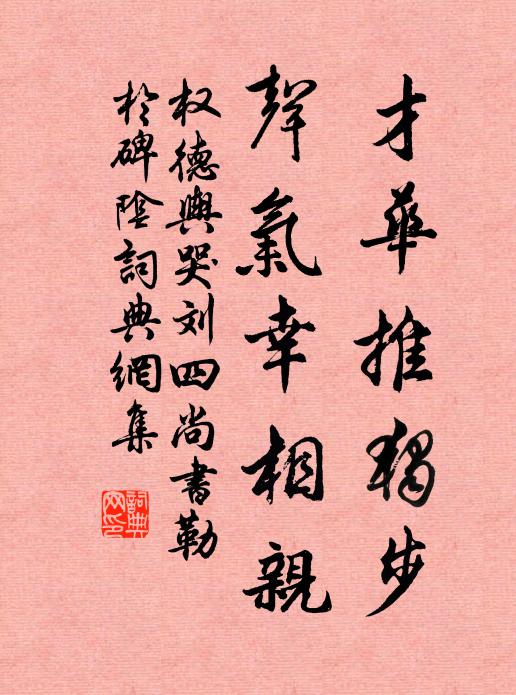 才華推獨步
聲氣幸相親
权德輿哭刘四尚書勒
於碑陰詞典網集
詞典
网印